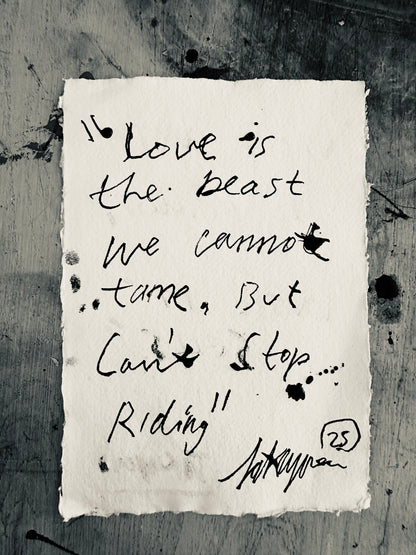 "Love is
the beast
we cannot
tame, But
Can't Stop
Riding"
25